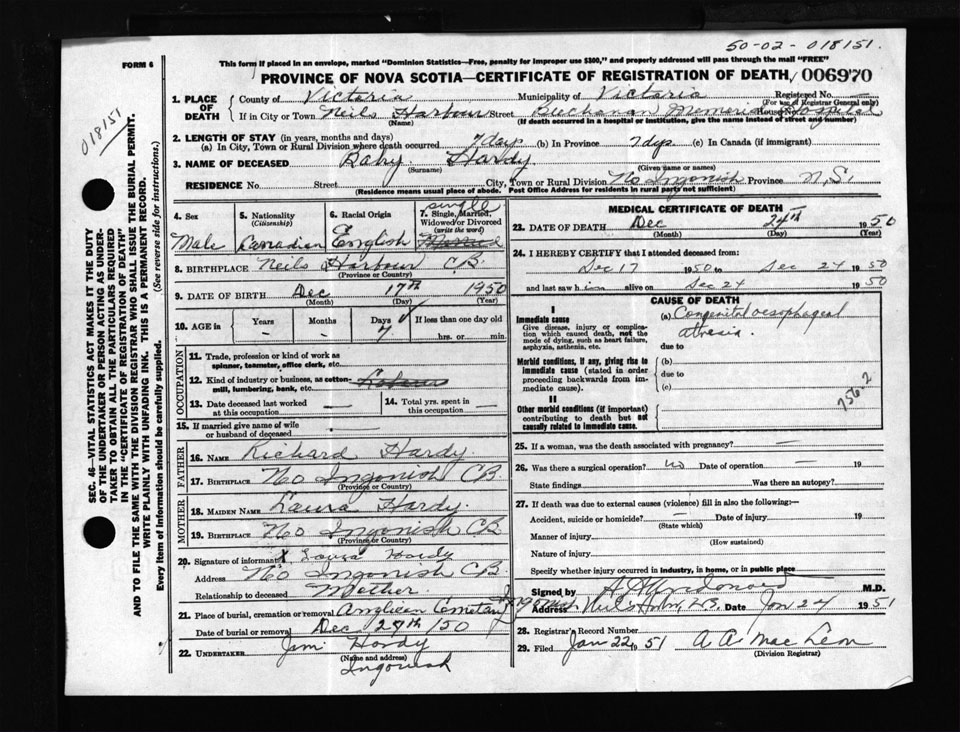 50-02-018151.
FORM 6
This form if placed in an envelope, marked "Dominion Statistics—Free, penalty for improper use $300," and properly addressed will pass through the mail "FREE"
PROVINCE OF NOVA SCOTIA—CERTIFICATE OF REGISTRATION OF DEATH, 006970
018151
SEC. 46—VITAL STATISTICS ACT MAKES IT THE DUTY
OF THE UNDERTAKER OR PERSON ACTING AS UNDER-
TAKER TO OBTAIN ALL THE PARTICULARS REQUIRED
IN THE "CERTIFICATE OF REGISTRATION OF DEATH"
AND TO FILE THE SAME WITH THE DIVISION REGISTRAR WHO SHALL ISSUE THE BURIAL PERMIT.
WRITE PLAINLY WITH UNFADING INK. THIS IS A PERMANENT RECORD.
Every item of Information should be carefully supplied. (See reverse side for instructions.)
1. PLACE OF DEATH County of Victoria Municipality of Victoria Registered No. —
(For use of Registrar General only)
If in City or Town Neils Harbour Street Buchanan Memorial Hospital House No.
(Name) (If death occurred in a hospital or institution, give the name instead of street and number)
2. LENGTH OF STAY (in years, months and days)
(a) In City, Town or Rural Division where death occurred 7 days (b) In Province 7 dys. (c) In Canada (if immigrant)
3. NAME OF DECEASED Baby Hardy
(Surname) (Given name or names)
RESIDENCE No. Street City, Town or Rural Division No Ingonish Province N.S.
(Residence means usual place of abode. Post Office Address for residents in rural parts not sufficient)
4. Sex 5. Nationality (Citizenship) 6. Racial Origin 7. Single, Married, Widowed or Divorced (write the word) single
Male Canadian English Married
8. BIRTHPLACE Neils Harbour C.B.
(Province or Country)
9. DATE OF BIRTH Dec 17th 1950
(Month) (Day) (Year)
10. AGE in Years Months Days If less than one day old
- - 7 hrs. or min.
OCCUPATION
11. Trade, profession or kind of work as spinner, teamster, office clerk, etc.
12. Kind of industry or business, as cotton-mill, lumbering, bank, etc.
13. Date deceased last worked at this occupation — 14. Total yrs. spent in this occupation —
15. If married give name of wife or husband of deceased
FATHER
16. NAME Richard Hardy.
17. BIRTHPLACE No Ingonish CB.
(Province or Country)
MOTHER
18. MAIDEN NAME Laura Hardy.
19. BIRTHPLACE No Ingonish CB
(Province or Country)
20. Signature of informant X Laura Hardy
Address No Ingonish CB.
Relationship to deceased Mother
21. Place of burial, cremation or removal Anglican Cemetary
Date of burial or removal Dec 27th /50
22. UNDERTAKER Jim Hardy
(Name and address)
Ingonish
MEDICAL CERTIFICATE OF DEATH
23. DATE OF DEATH Dec 24th 1950
(Month) (Day) (Year)
24. I HEREBY CERTIFY that I attended deceased from:
Dec 17 1950 to Dec 24 1950
and last saw him alive on Dec 24 1950
CAUSE OF DEATH
I
Immediate cause (a) Congenital oesophageal
Give disease, injury or complication which caused death, not the mode of dying, such as heart failure, asphyxia, asthenia, etc. atresia.
due to
Morbid conditions, if any, giving rise to immediate cause (stated in order proceeding backwards from immediate cause). (b)
due to
(c)
756-2
II
Other morbid conditions (if important) contributing to death but not causally related to immediate cause.
25. If a woman, was the death associated with pregnancy? —
26. Was there a surgical operation? no Date of operation — 19
State findings Was there an autopsy?
27. If death was due to external causes (violence) fill in also the following:—
Accident, suicide or homicide? — Date of injury 19
(State which)
Manner of injury
(How sustained)
Nature of injury
Specify whether injury occurred in industry, in home, or in public place
Signed by M.D.
Address Neils Hrbr, C.B. Date Jan 24 1951
28. Registrar's Record Number
29. Filed Jan 22 1951 A. A. MacLean
(Division Registrar)